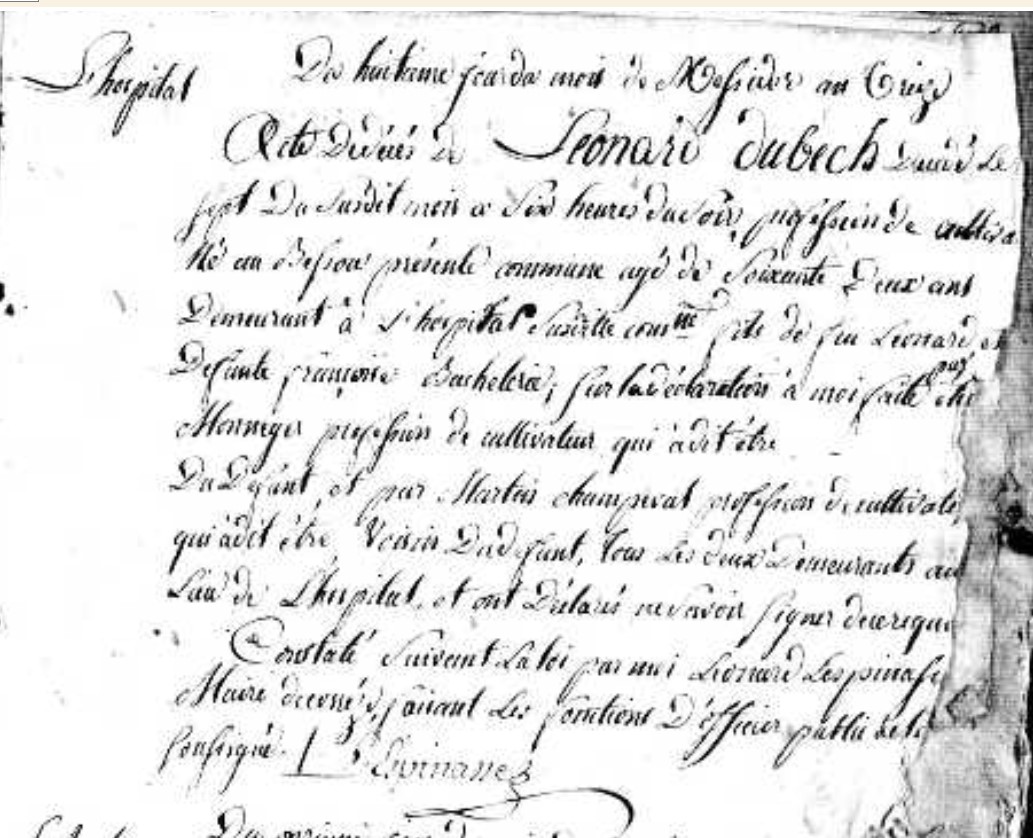 L'hospital
Du huitieme jour du mois de Messidor an Treize
Acte Décées de Leonard dubech Décédé Le
sept Du susdit mois a Six heures du soir, profession de cultiva
Né au présente commune agé de Soixante Deux ans
Demeurant à L'hospital Susditte com.ne fils de feu Leonard et
Defunte françoise Bachelerie; sur la déclaration à moi faite par
profession de cultivateur qui à dit être
Du Defunt, et par Martin champeval profession de cultivate
qui à dit être Voisin Dud. funt, tous Les deux Demeurants au
Lieu de L'hospital, et ont Déclaré ne Savoir signer de ce requis
Constaté Suivant La loi par moi Leonard Lespinasse
Maire de faisant Les fonctions D'officier public
Soussigné. Lespinasse